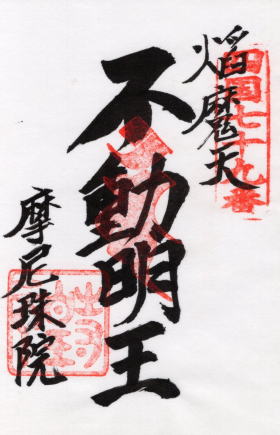 四国七十九番
焰魔天
不動明王
摩尼珠院